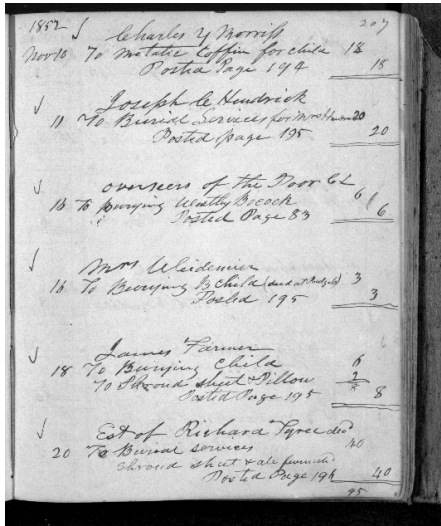 1852 207
Charles Y Morriss
Nov 10 To Metalic Coffin for child 18
Posted Page 194 18
Joseph C Hendrick
11 To Burial Services for Mrs 20
Posted page 195 20
overseers of the Poor
16 To burying Bocock 6
Posted Page 83 6
Mrs Weidemier
16 To Burying B child (died at 3
Posted 195 3
James Farmer
18 To Burying Child 6
To Shroud sheet & Pillow 2
Posted Page 195 8
Est of Richard Tyree decd
20 To Burial services 40
shroud sheet &
Posted Page 40
95